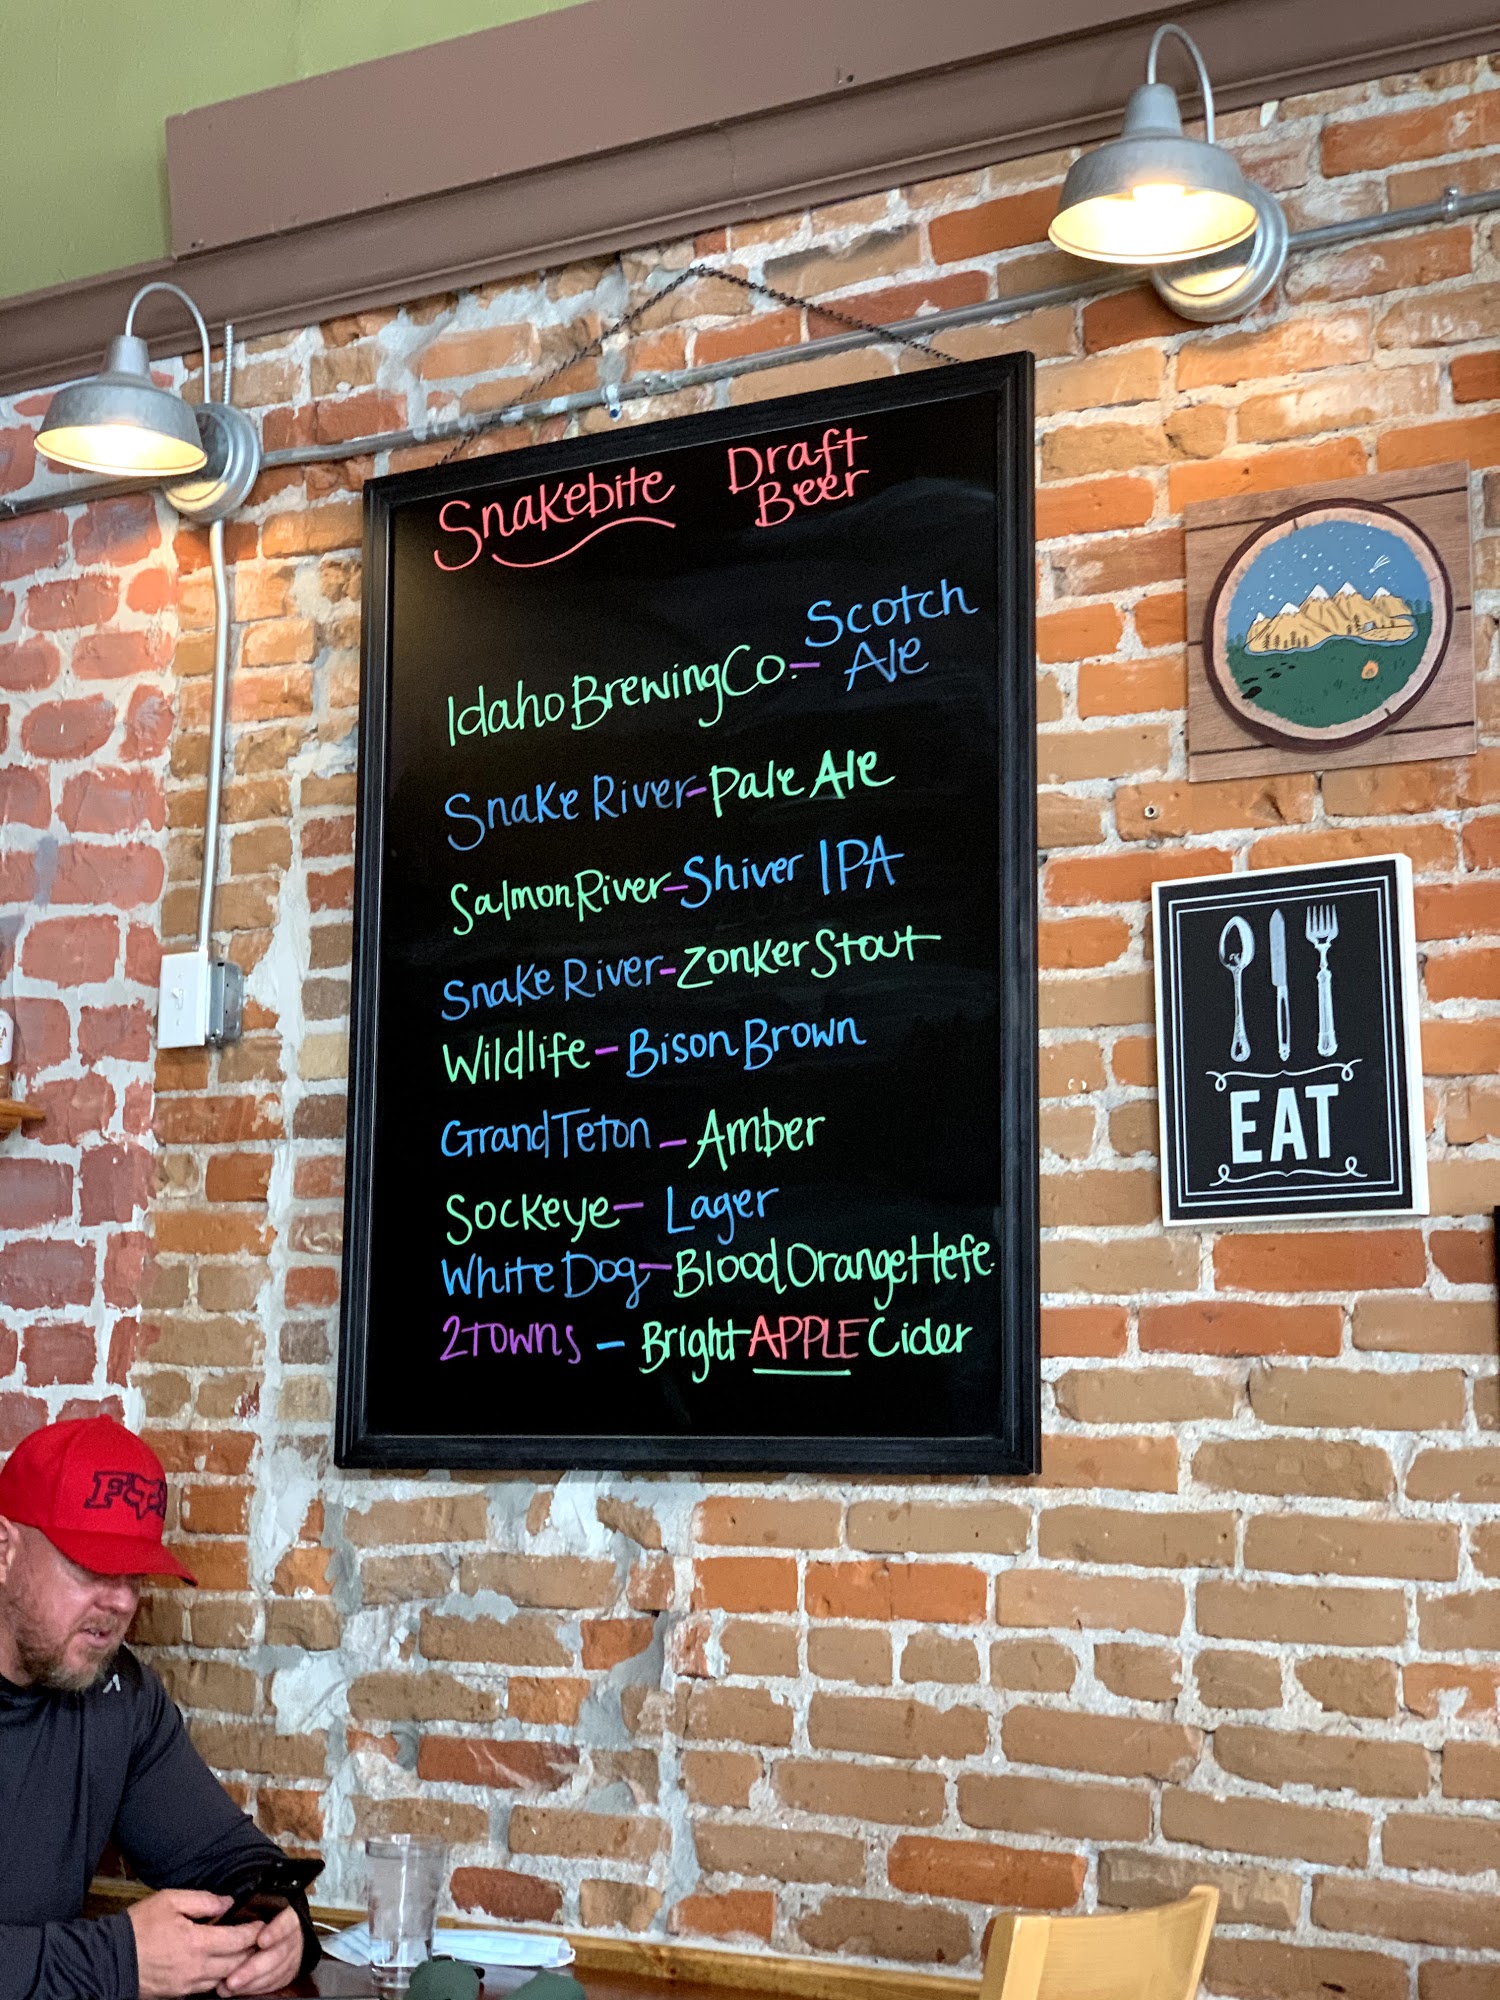 Snakebite Draft Beer
Idaho Brewing Co. - Scotch Ale
Snake River - Pale Ale
Salmon River - Shiver IPA
Snake River - Zonker Stout
Wildlife - Bison Brown
Grand Teton - Amber
Sockeye - Lager
White Dog - Blood Orange Hefe.
2 TOWNS - Bright APPLE Cider
EAT